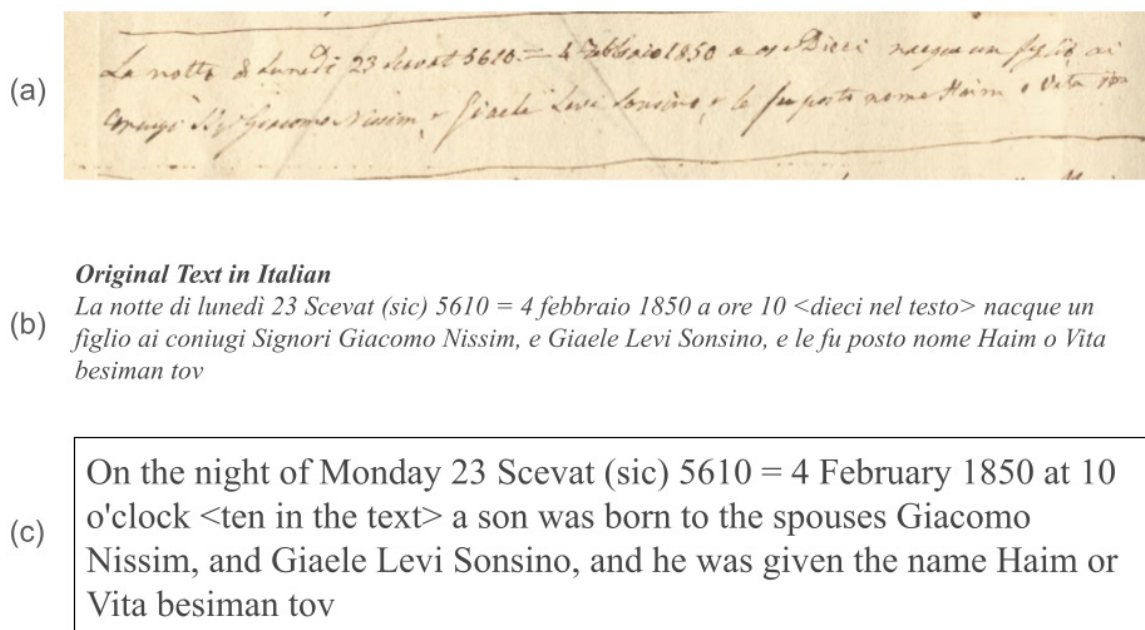 (a)
La notte di Lunedì 23 Scevat 5610 = 4 Febbraio 1850 a ore Dieci nacque un figlio ai
Coniugi Sigri Giacomo Nissim, e Giaele Levi Sonsino, e le fu posto nome Haim o Vita
(b)
Original Text in Italian
La notte di lunedì 23 Scevat (sic) 5610 = 4 febbraio 1850 a ore 10 <dieci nel testo> nacque un
figlio ai coniugi Signori Giacomo Nissim, e Giaele Levi Sonsino, e le fu posto nome Haim o Vita
besiman tov
(c)
On the night of Monday 23 Scevat (sic) 5610 = 4 February 1850 at 10
o'clock <ten in the text> a son was born to the spouses Giacomo
Nissim, and Giaele Levi Sonsino, and he was given the name Haim or
Vita besiman tov